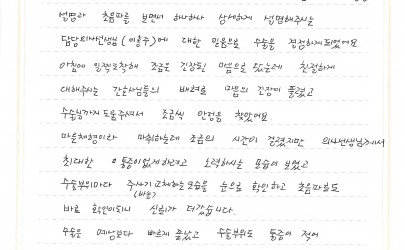 설명과 초음파를 보면서 하나하나 상세하게 설명해주시는
담당의사선생님 (이홍구)에 대한 믿음으로 수술을 결정하게되었어요.
아침에 일찍도착해 조금은 긴장된 마음으로 왔는데 친절하게
대해주는 간호사님들의 배려로 마음의 긴장이 풀렸고
수술실까지 도움주셔서 조금씩 안정을 찾았어요
마른체형이라 마취하는데 조금의 시간이 걸렸지만 의사선생님께서
최대한 통증이없게하려고 노력하시는 모습이 보였고
수술부위마다 주사기 교체하는모습을 눈으로 확인하고 초음파로도
(바늘)
바로 확인이되니 신뢰가 더갔습니다.
수술은 예상보다 빠르게 끝났고 수술부위도 통증이 적어